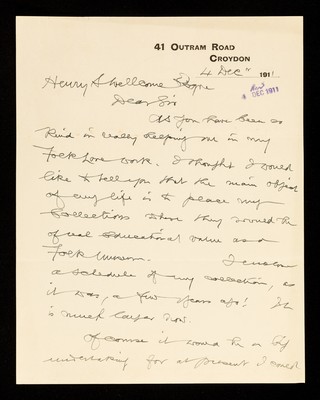 41 OUTRAM ROAD
CROYDON
4 Dec 1911
4 DEC 1911
Henry S Wellcome Esqre
Dear Sir
As you have been so
kind in really helping me in my
Folk Lore work. I thought I would
like to tell you that the main object
of my life is to place my
Collections where they would be
of real educational value as a
Folk Museum. I enclose
a schedule of my collection, as
it was, a few years ago! It
is much larger now.
Of course it would be a big
undertaking for at present I